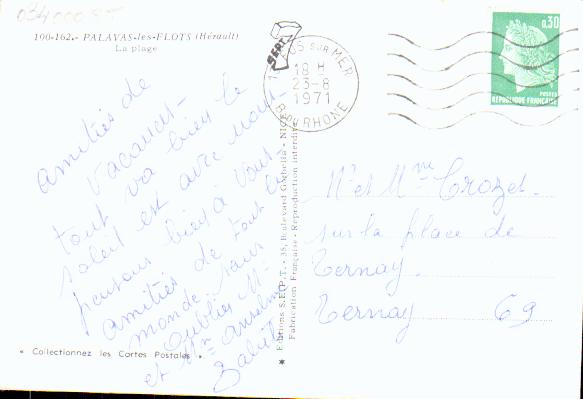 034000 ST
100-162.- PALAVAS-les-FLOTS (Hérault)
La plage
amitiés de
vacances -
tout va bien le
soleil est avec nous -
pensons bien à vous -
amitiés de tout le
monde sans
oublier Mr
et Mme Anselme
« Collectionnez les Cartes Postales »
Editions S.E.P.T. - 35, Boulevard Gorbella - NICE
Fabrication Française - Reproduction interdite
SEPT
SUR MER
18 H
23-8
1971
B DU RHONE
0,30
POSTES
REPUBLIQUE FRANÇAISE
Mr et Mme Crozet.
sur la place de
Ternay.
Ternay 69